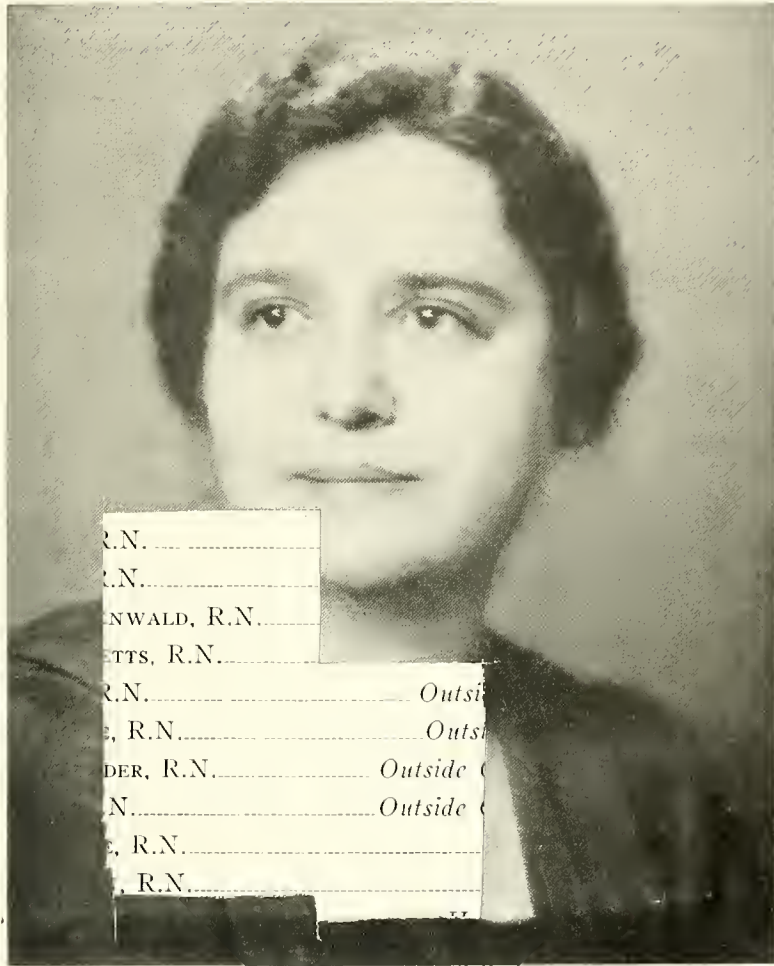 R.N.
R.N.
NWALD, R.N.
ETTS, R.N.
R.N. Outsi
, R.N. Outsi
DER, R.N. Outside
N. Outside
, R.N.
, R.N.